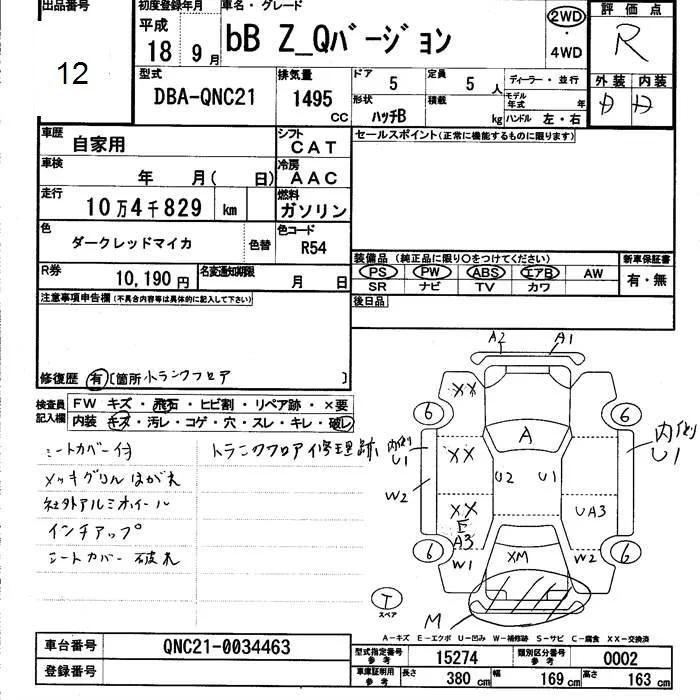 出品番号 12
初度登録年月 平成 18 9月
車名・グレード bB Z_Qバージョン
2WD ・ 4WD
評価点 R
外装 内装
型式 DBA-QNC21
排気量 1495 CC
ドア 5 定員 5 人
ディーラー・並行
形状 ハッチB 積載 kg
モデル年式 年
ハンドル 左・右
車歴 自家用
シフト CAT
セールスポイント(正常に機能するものに限ります)
車検 年 月( 日)
冷房 AAC
走行 10万4千829 km
燃料 ガソリン
色 ダークレッドマイカ 色替
色コード R54
装備品(純正品に限り○をつけてください) 新車保証書
R券 10,190円 名変通知期限 月 日
PS PW ABS エアB AW 有・無
SR ナビ TV カワ
注意事項申告欄(不具合内容等は具体的に記入して下さい)
後日品
修復歴 有 [箇所 トランクフロア ]
検査員記入欄
FW キズ・飛石・ヒビ割・リペア跡・×要
内装 キズ・汚レ・コゲ・穴・スレ・キレ・破レ
シートカバー付 トランクフロア修理跡
メッキグリルはがれ
社外アルミホイール
インチアップ
シートカバー破れ
A2 A1
XX
6 6
A
内側 U1 XX U2 U1 内側 U1
W2
XX E A3 UA3
6 W1 XM W2 6
T スペア
M
A-キズ E-エクボ U-凹み W-補修跡 S-サビ C-腐食 XX-交換済
車台番号 QNC21-0034463
型式指定番号 参考 15274 類別区分番号 参考 0002
登録番号
車庫証明用 参考 長さ 380 cm 幅 169 cm 高さ 163 cm